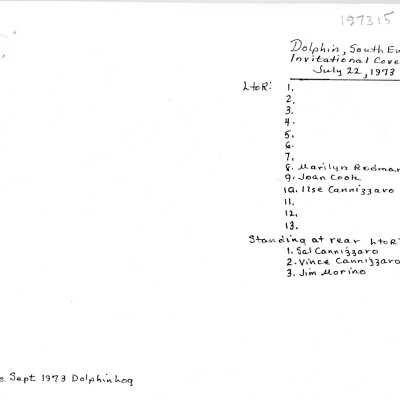 197315
Dolphin, South En
Invitational Cove
July 22, 1973
L to R: 1.
2.
3.
4.
5.
6.
7.
8. Marilyn Rodman
9. Joan Cook
10. Ilse Cannizzaro
11.
12.
13.
Standing at rear L to R:
1. Sal Cannizzaro
2. Vince Cannizzaro
3. Jim Morino
Sept 1973 Dolphin Log